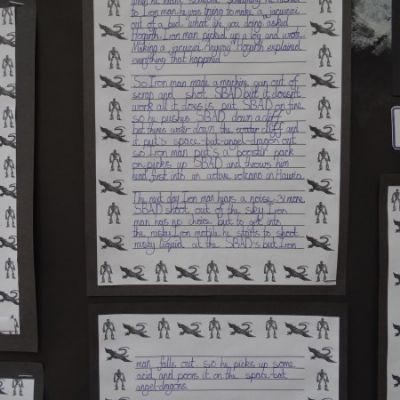 to Iron man he was trying to make a jacuzzi
out of a bad what are you doing asked
Hogarth. Iron man picked up a log and wrote
Making a jacuzzi Anyway Hogarth explained
everything that happened
So Iron man made a machine gun out of
scrap and shot SBAD but it doesn't
work all it does is put SBAD on fire
so he pushes SBAD down a cliff
but theres water down the cliff and
it put's space-bat-angel-dragon out
so Iron man puts a booster pack
on picks up SBAD and throws him
head first into an active volcano in Hawaii.
The next day Iron man hears a noise 31 more
SBAD shoot out of the sky Iron
man has no choice but to get into
the rusty Iron mobile he starts to shoot
rusty liquid at the SBAD's but Iron
man falls out so he picks up some
acid and poors it on the space-bat
angel-dragons.